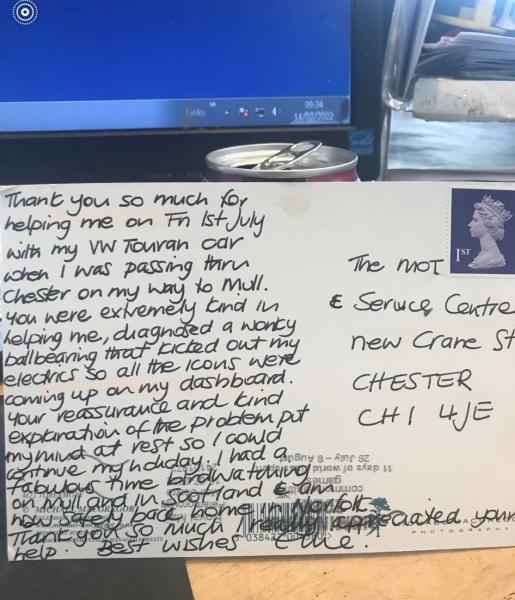 Links
09:34
14/07/2022
Thank you so much for
helping me on Fri 1st July
with my VW Touran car
when I was passing thru
Chester on my way to Mull.
You were extremely kind in
helping me, diagnosed a wonky
ballbearing that kicked out my
electrics so all the icons were
coming up on my dashboard.
Your reassurance and kind
explanation of the problem put
my mind at rest so I could
continue my holiday. I had a
fabulous time birdwatching
on Mull and in Scotland & am
now back home in Norfolk.
Thank you so much I really appreciated your
help. Best wishes
1ST
The MOT
& Service Centre
New Crane St
CHESTER
CH1 4JE
11 days of world class sport
28 July - 8 August
commonwealth
games
PHOTOGRAPHY